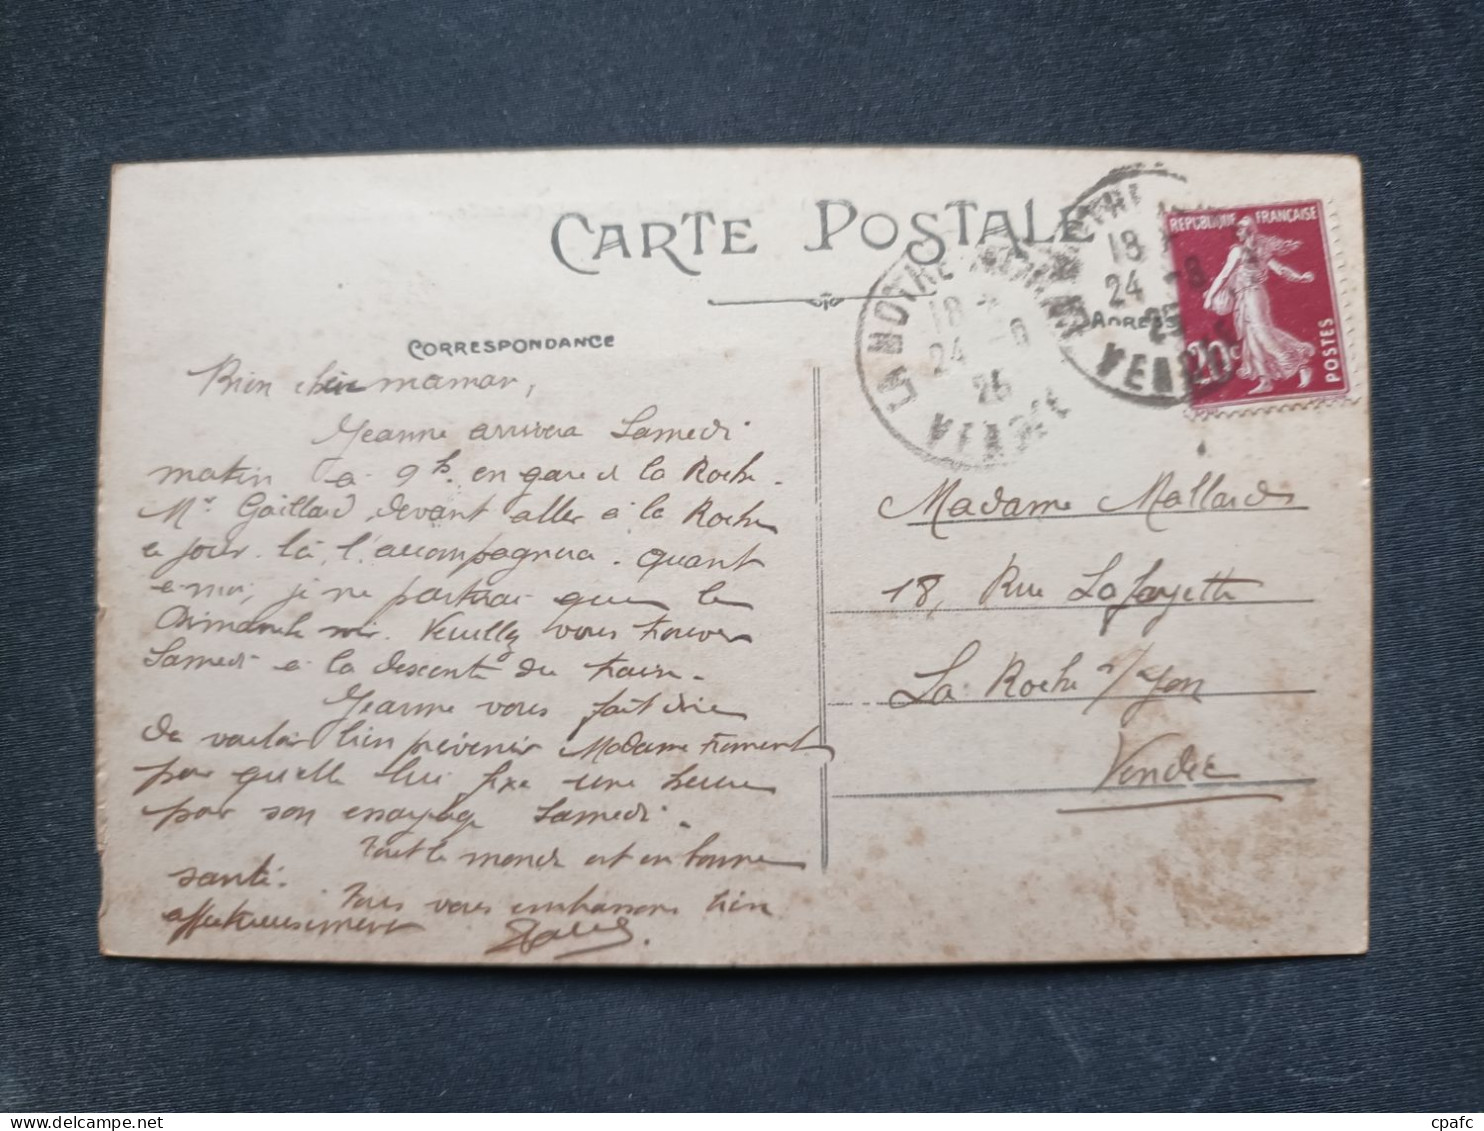 CARTE POSTALE
CORRESPONDANCE
ADRESSE
REPUBLIQUE FRANÇAISE
POSTES
20c
LA MOTHE
18
24 - 8
25
VENDÉE
18
24 - 8
25
VENDÉE
Bien chère maman,
Jeanne arrivera Samedi
matin à 9h. en gare de la Roche.
Mr Gaillard devant aller à la Roche
ce jour là l'accompagnera. Quant
à moi, je ne partirai que le
Dimanche soir. Veuillez vous trouver
Samedi à la descente du train.
Jeanne vous fait dire
de vouloir bien prévenir Madame Froment
pour qu'elle lui fixe une heure
pour son essayage Samedi.
Tout le monde est en bonne
santé. Tous vous embrassons bien
affectueusement
Madame Mallard
18, Rue Lafayette
La Roche s/ Yon
Vendée
cpafc